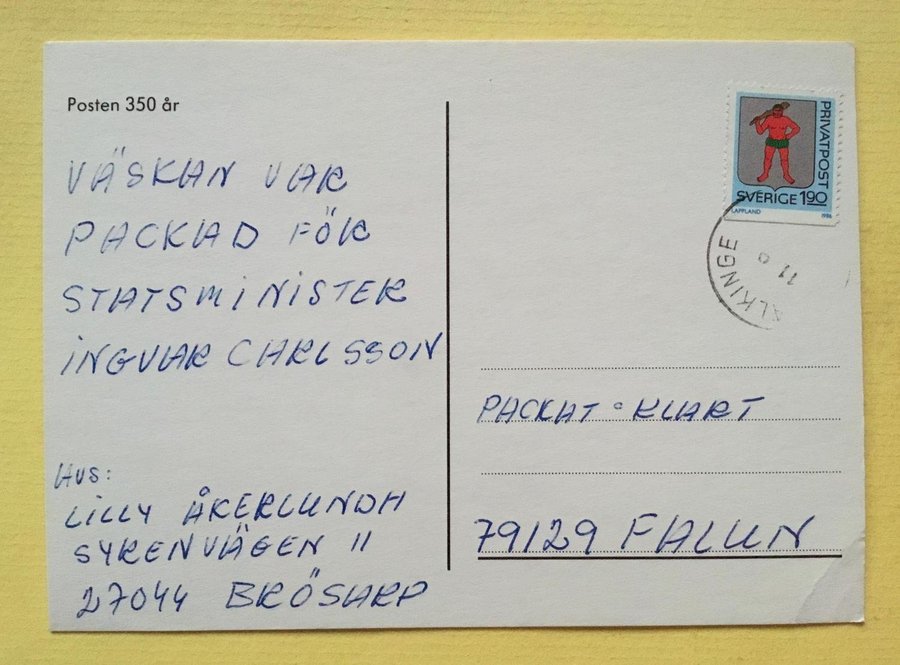 Posten 350 år
VÄSKAN VAR
PACKAD FÖR
STATSMINISTER
INGVAR CARLSSON
HUS:
LILLY ÅKERLUNDH
SYRENVÄGEN 11
27044 BRÖSARP
PRIVATPOST
SVERIGE 190
LAPPLAND 1986
ALKINGE
11
PACKAT o KLART
79129 FALUN